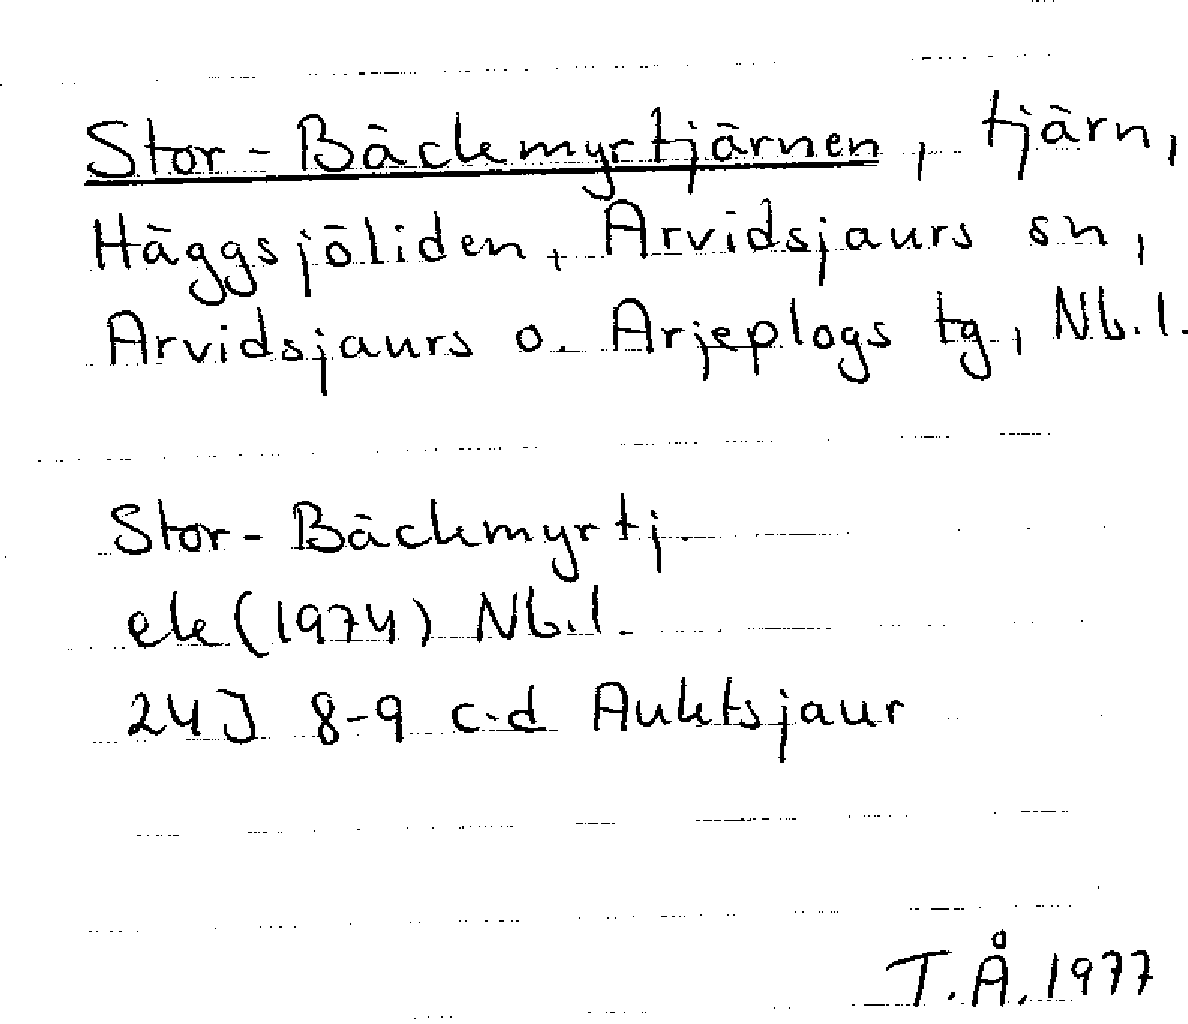 Stor-Bäckmyrtjärnen, tjärn,
Häggsjöliden, Arvidsjaurs sn,
Arvidsjaurs o. Arjeplogs tg, Nb.l.
Stor-Bäckmyrtj.
ek (1974) Nb.l.
24J 8-9 c-d Auktsjaur
T.Å. 1977